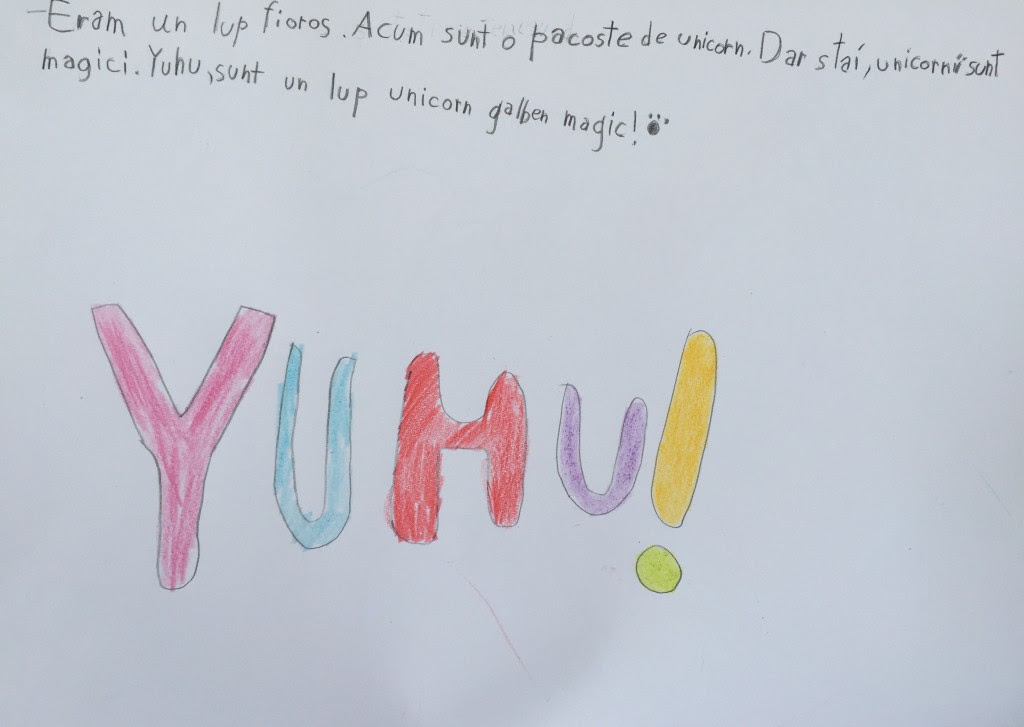 -Eram un lup fioros. Acum sunt o pacoste de unicorn. Dar staí, unicornii sunt
magici. Yuhu, sunt un lup unicorn galben magic!
YUHU!